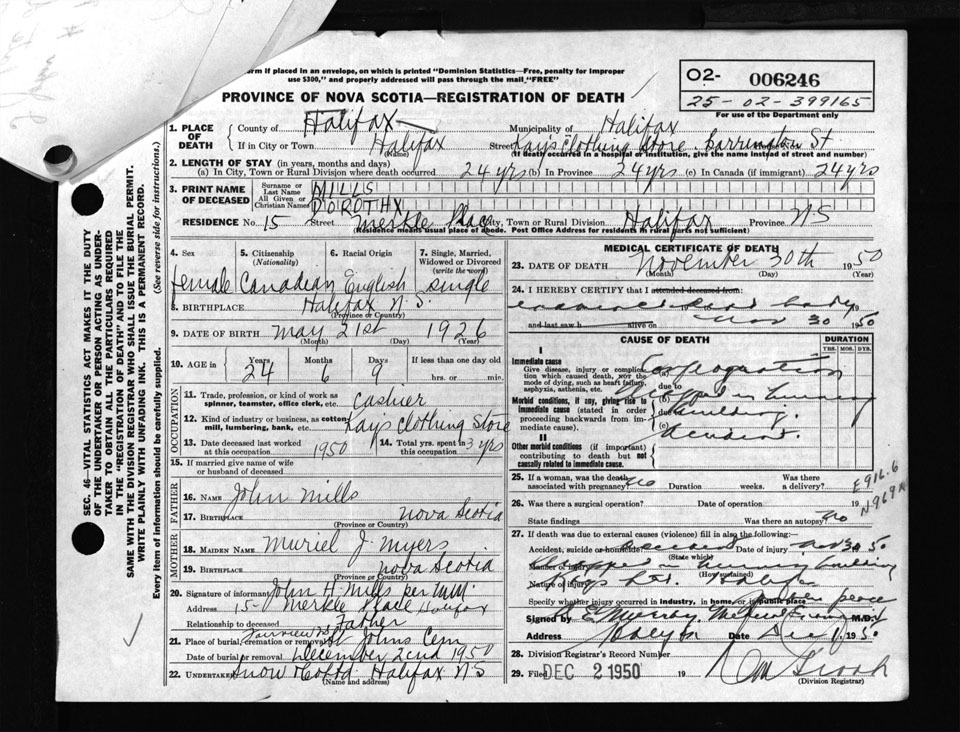 form if placed in an envelope, on which is printed "Dominion Statistics—Free, penalty for improper
use $300," and properly addressed will pass through the mail "FREE"
PROVINCE OF NOVA SCOTIA—REGISTRATION OF DEATH
O2- 006246
25-02-399165
For use of the Department only
1. PLACE OF DEATH
County of Halifax Municipality of Halifax
If in City or Town Halifax Street Kay's Clothing Store. Barrington St.
(Name) (If death occurred in a hospital or institution, give the name instead of street and number)
2. LENGTH OF STAY (in years, months and days)
(a) In City, Town or Rural Division where death occurred 24 yrs (b) In Province 24 yrs (c) In Canada (if immigrant) 24 yrs
3. PRINT NAME OF DECEASED
Surname or Last Name MILLS
All Given or Christian Names DOROTHY
RESIDENCE No. 15 Street Merkle Place City, Town or Rural Division Halifax Province N S
(Residence means usual place of abode. Post Office Address for residents in rural parts not sufficient)
4. Sex 5. Citizenship (Nationality) 6. Racial Origin 7. Single, Married, Widowed or Divorced (write the word)
Female Canadian English single
8. BIRTHPLACE Halifax N. S.
(Province or Country)
9. DATE OF BIRTH May 21st 1926
(Month) (Day) (Year)
10. AGE in Years Months Days If less than one day old
24 6 9 hrs. or min.
OCCUPATION
11. Trade, profession, or kind of work as spinner, teamster, office clerk, etc. Cashier
12. Kind of industry or business, as cotton mill, lumbering, bank, etc. Kays Clothing Store
13. Date deceased last worked at this occupation 1950 14. Total yrs. spent in this occupation 3 yrs
15. If married give name of wife or husband of deceased
FATHER
16. NAME John Mills
17. BIRTHPLACE Nova Scotia
(Province or Country)
MOTHER
18. MAIDEN NAME Muriel J. Myers
19. BIRTHPLACE Nova Scotia
(Province or Country)
20. Signature of informant John H. Mills per
Address 15- Merkle Place Halifax
Relationship to deceased Father
21. Place of burial, cremation or removal Fairview St Johns Cem
Date of burial or removal December 2nd 1950
22. Undertaker Snow Halifax N S
(Name and address)
MEDICAL CERTIFICATE OF DEATH
23. DATE OF DEATH November 30th 1950
(Month) (Day) (Year)
24. I HEREBY CERTIFY that I attended deceased from:
examined dead body
and last saw h alive on Nov 30 1950
CAUSE OF DEATH DURATION
YRS. MOS. DYS.
I
Immediate cause
Give disease, injury or complication which caused death, not the mode of dying, such as heart failure, asphyxia, asthenia, etc.
(a)
due to
Morbid conditions, if any, giving rise to immediate cause (stated in order proceeding backwards from immediate cause).
(b) in burning
due to building.
(c) Accident.
II
Other morbid conditions (if important) contributing to death but not causally related to immediate cause.
25. If a woman, was the death associated with pregnancy? no Duration weeks. Was there a delivery?
E916.6
N-969
26. Was there a surgical operation? Date of operation 19
State findings Was there an autopsy? no
27. If death was due to external causes (violence) fill in also the following:
Accident, suicide or homicide? Accident Date of injury Nov 30 50
(State which)
Manner of injury Trapped in burning building
(How sustained)
Nature of injury Kays Ltd. Halifax
Specify whether injury occurred in industry, in home, or in public place Public place
Signed by Medical M.D.
Address Halifax Date Dec 1 1950
28. Division Registrar's Record Number
29. Filed DEC 2 1950 19
(Division Registrar)
SEC. 46—VITAL STATISTICS ACT MAKES IT THE DUTY
OF THE UNDERTAKER OR PERSON ACTING AS UNDERTAKER
TO OBTAIN ALL THE PARTICULARS REQUIRED
IN THE "REGISTRATION OF DEATH" AND TO FILE THE
SAME WITH THE DIVISION REGISTRAR WHO SHALL ISSUE THE BURIAL PERMIT.
WRITE PLAINLY WITH UNFADING INK. THIS IS A PERMANENT RECORD.
Every item of information should be carefully supplied. (See reverse side for instructions.)